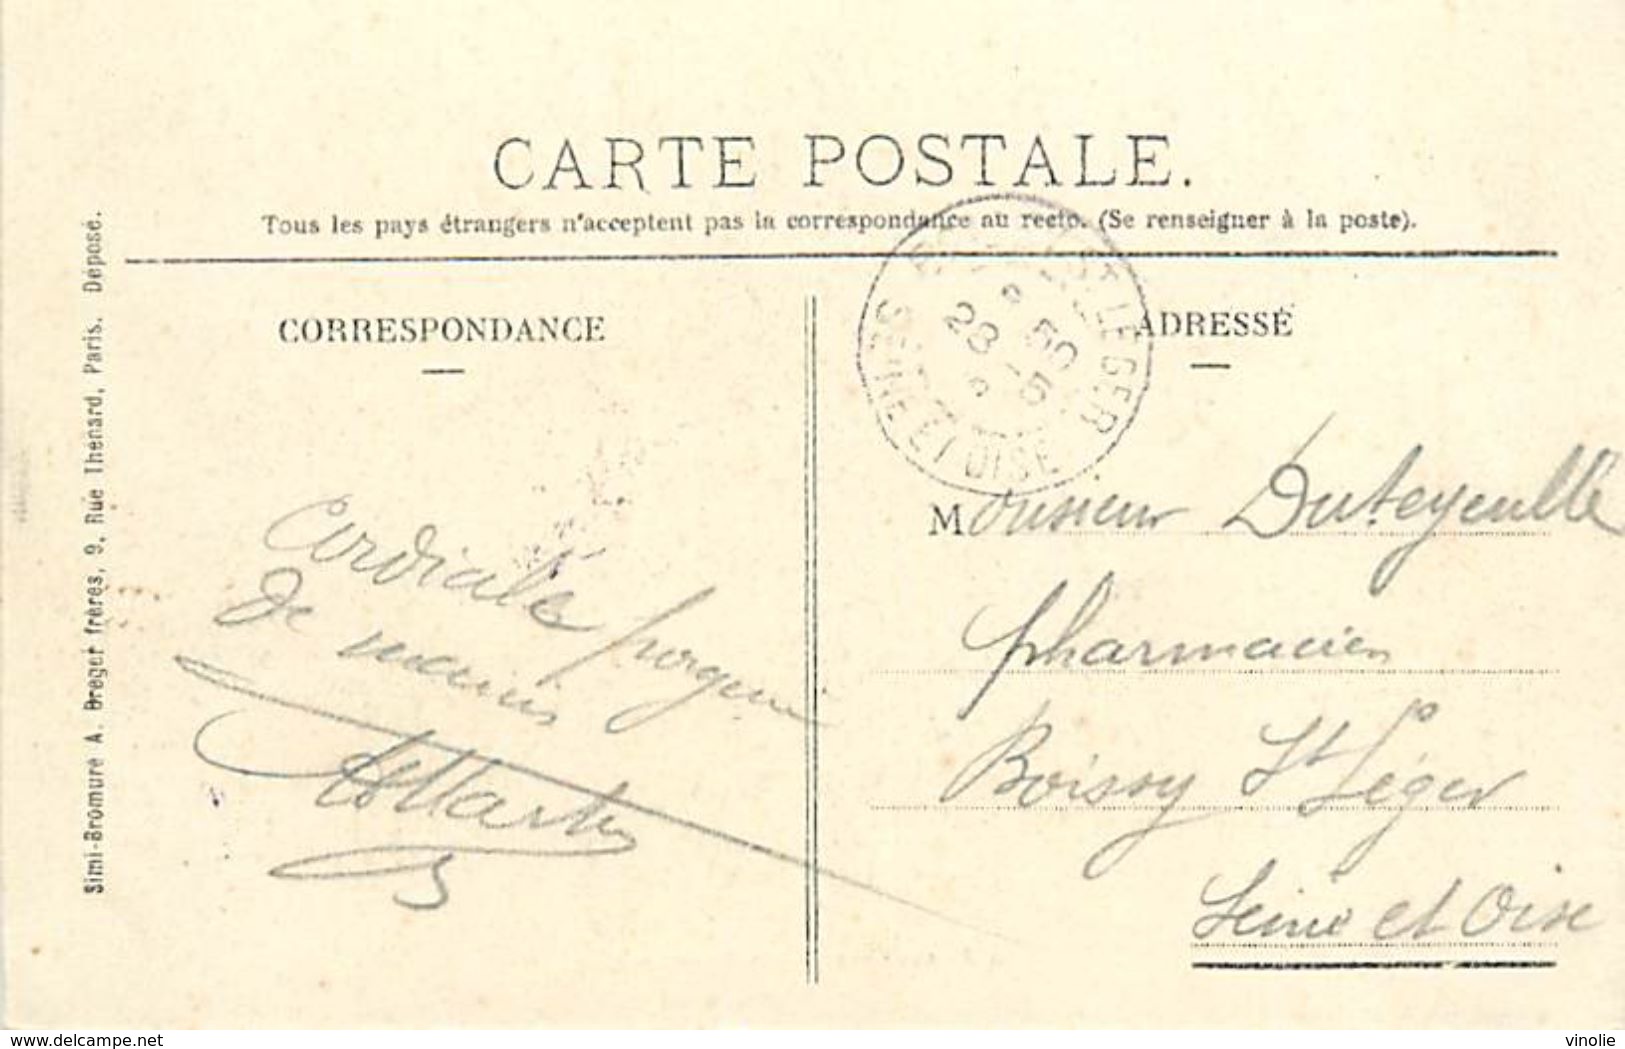 CARTE POSTALE.
Tous les pays étrangers n'acceptent pas la correspondance au recto. (Se renseigner à la poste).
Simi-Bromure A. Breger frères, 9, Rue Thenard, Paris. Déposé.
CORRESPONDANCE
Cordiale
de mains
ADRESSE
ST LEGER
SEINE ET OISE
Monsieur Duteyeulle
pharmacien
Boissy St Léger
Seine et Oise
delcampe.net
vinolie